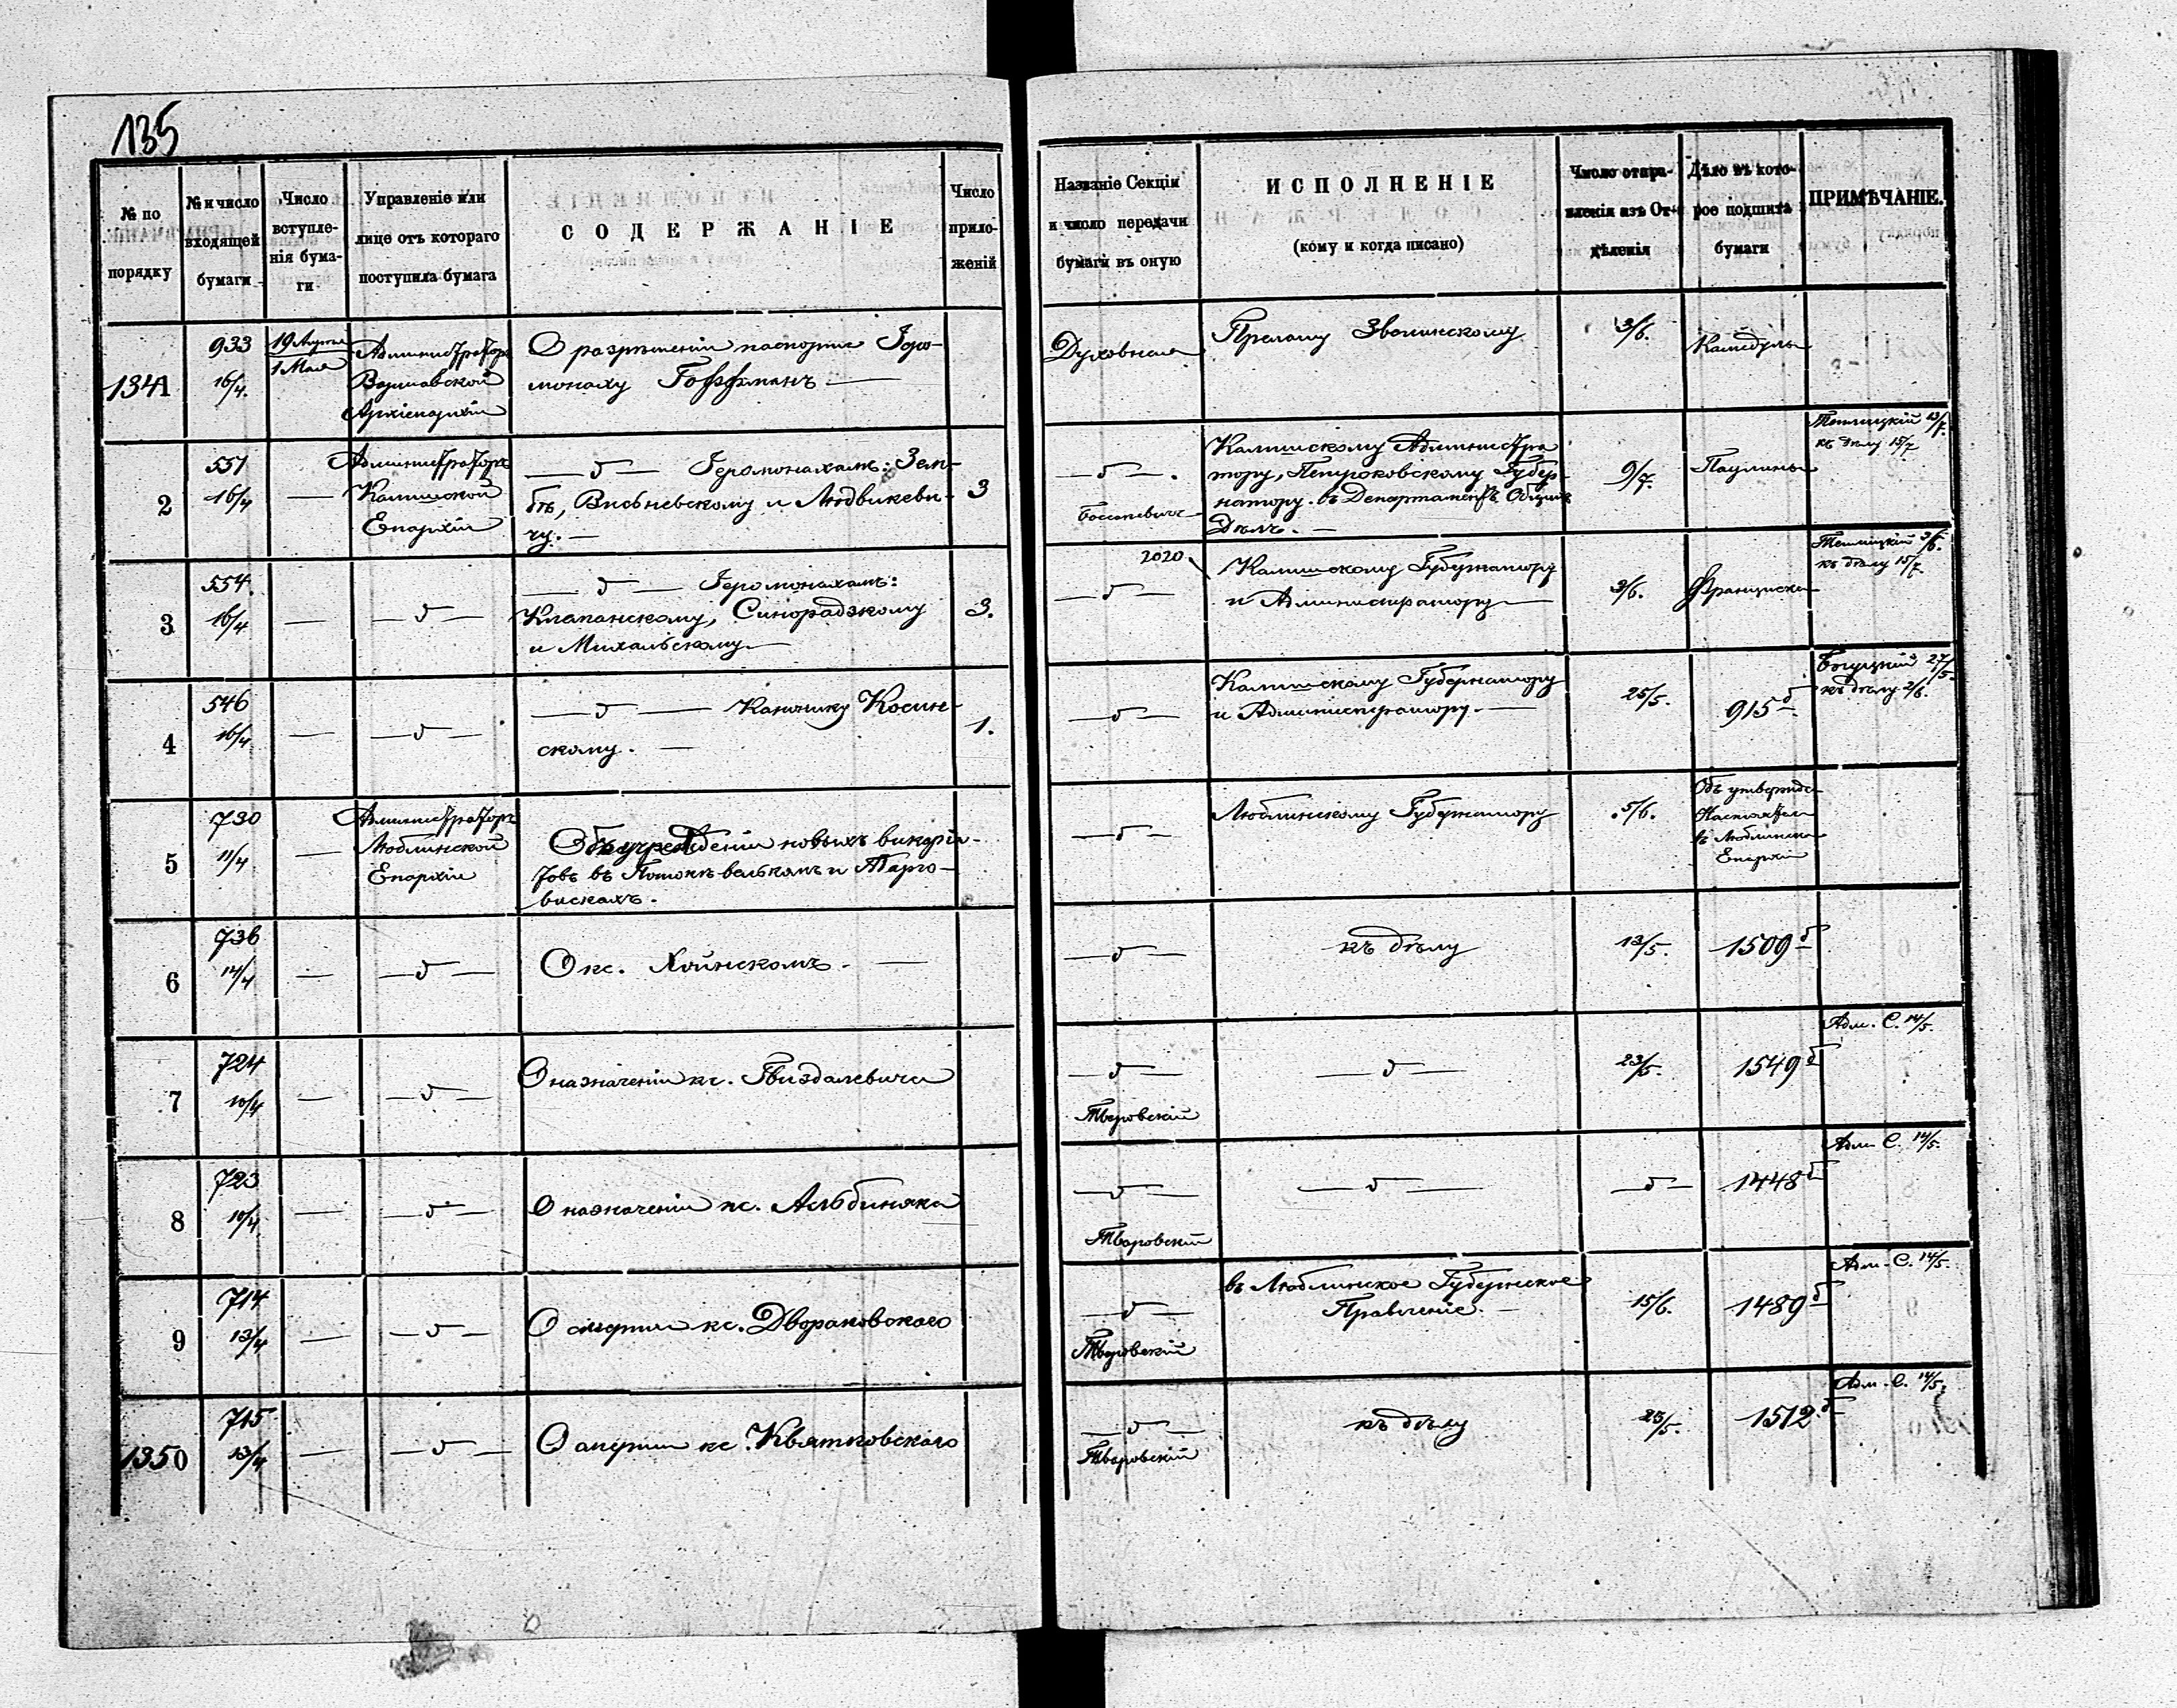 135
№ по
порядку
№ и число
входящей
бумаги
Число
вступле-
нія бума-
ги
Управленіе или
лице отъ котораго
поступила бумага
СОДЕРЖАНІЕ
Число
прило-
женій
Названіе Секціи
и число передачи
бумаги въ оную
ИСПОЛНЕНІЕ
(кому и когда писано)
Число отпра-
вленія изъ От-
дѣленія
Дѣло въ кото-
рое подшита
бумаги
ПРИМѢЧАНІЕ.
1341
933
16/4.
19 Апрѣля
1 Мая
Администраторъ
Варшавской
Архіепархіи
О разрѣшеніи паспорта Іеро-
монаху Гоффманъ —
Духовная
Прелату Званискому
3/6.
Камедулы
2
551
16/4
—
Администраторъ
Калишской
Епархіи
— d — Іеромонахамъ: Зем-
бѣ, Висьневскому и Людвикеви-
чу. —
3
— d — .
Калишскому Администра
тору, Петроковскому Губер-
натору. въ Департаментъ Общихъ
Дѣлъ. —
9/7.
Паулины
13/7.
къ дѣлу 15/7
3
554.
16/4
—
— d —
— d — Іеромонахамъ:
Клапанскому, Синорадзкому
и Михальскому —
3.
— d —
2020
Калишскому Губернатору
и Администратору —
3/6.
Франциска
3/6.
къ дѣлу 15/7.
4
546
16/4
—
— d —
— d — Канонику Косин-
скому. —
1.
— d —
Калишскому Губернатору
и Администратору. —
25/5.
915 б
Богуцкій 27/5.
къ дѣлу 2/6.
5
730
11/4
—
Администраторъ
Люблинской
Епархіи
Объ учрежденіи новыхъ викарія-
товъ въ Потокѣ-велькомъ и Тарго-
вискахъ.
— d —
Люблинскому Губернатору
5/6.
Объ утвержд.
Настоятеля
въ Люблинской
Епархіи
6
736
14/4
—
— d —
О кс. Хойнскомъ. —
— d —
къ дѣлу
13/5.
1509 б
7
724
10/4
—
— d —
О назначеніи кс. Гвиздалевича
— d —
Тваровскій
— d —
23/5.
1549 б
Адм. С. 14/5.
8
723
10/4
—
— d —
О назначеніи кс. Альбиняка
— d —
Тваровскій
— d —
— d —
1448 б
Адм. С. 14/5.
9
714
13/4
—
— d —
О смерти кс. Двораковскаго
— d —
Тваровскій
въ Люблинское Губернское
Правленіе. —
15/6.
1489 б
Адм. С. 14/5.
1350
715
13/4
—
— d —
О смерти кс. Квятковскаго
— d —
Тваровскій
къ дѣлу
23/5.
1512 б
Адм. С. 14/5.